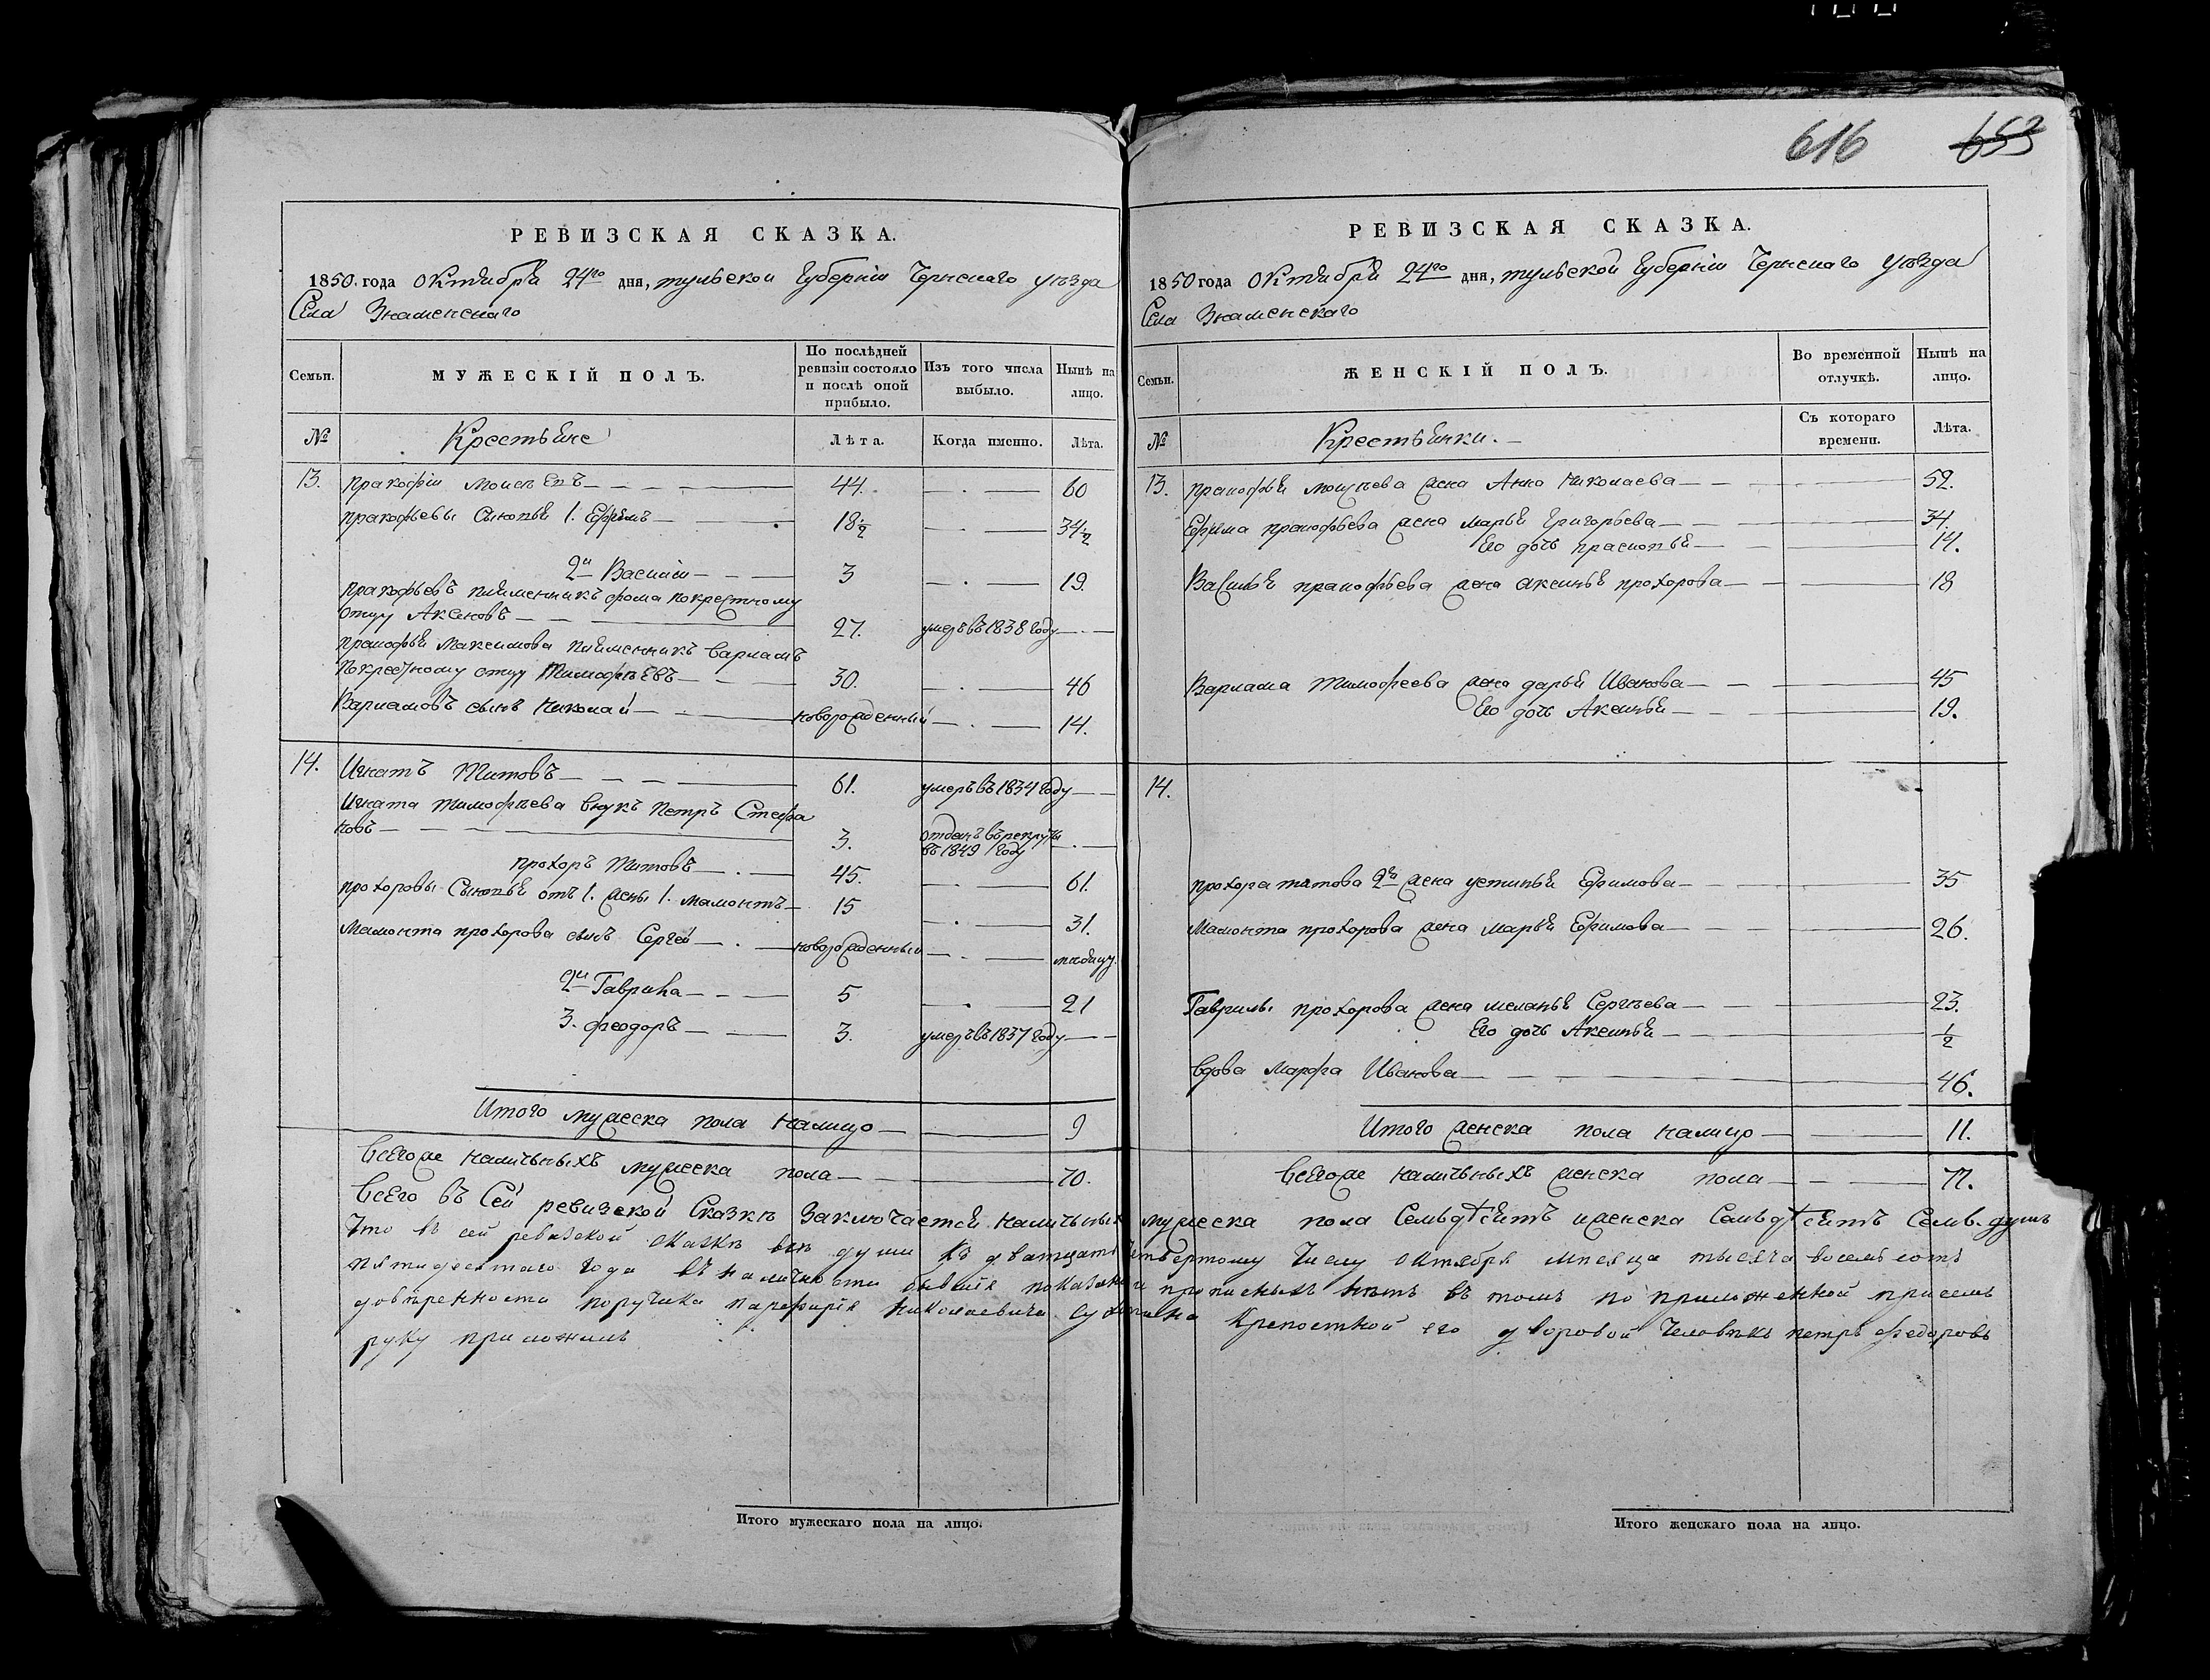 616 653
РЕВИЗСКАЯ СКАЗКА.
1850. года Октября 24го дня, тульской Губерніи Чернскаго уѣзда
Села Знаменскаго
Семьи.
МУЖЕСКІЙ ПОЛЪ.
По послѣдней ревизіи состояло и послѣ оной прибыло.
Изъ того числа выбыло.
Нынѣ на лицо.
№
Крестьяне
Лѣта.
Когда именно.
Лѣта.
13. Пракофій Моисѣевъ 44. 60
Пракофьевы Сыновья 1. Ефимъ 18½ 34½
2й Василій 3 19.
Пракофьевъ племянникъ Фома покрестному
отцу Аксеновъ 27. умеръ въ 1838 Году
Пракофья Максимова племянникъ Варламъ
покрестному отцу Тимофѣевъ 30. 46
Варламовъ сынъ Николай новорожденный 14.
14. Игнатъ Титовъ 61. умеръ въ 1834 Году
Игната Тимофѣева внукъ Петръ Стефа
новъ 3. отданъ въ рекруты въ 1849 Году
Прохоръ Титовъ 45. 61.
Прохоровы Сыновья отъ 1. жены 1. Мамонтъ 15 31.
Мамонта Прохорова сынъ Сергей новорожденный
2й Гаврила 5 21
3. Феодоръ 3. умеръ въ 1837 Году
Итого мужеска пола налицо 9
Всегоже наличныхъ мужеска пола 70.
РЕВИЗСКАЯ СКАЗКА.
1850 года Октября 24го дня, тульской Губерніи Чернскаго уѣзда
Села Знаменскаго
Семьи.
ЖЕНСКІЙ ПОЛЪ.
Во временной отлучкѣ.
Нынѣ на лицо.
№
Крестьянки.
Съ котораго времени.
Лѣта.
13. Пракофья Моисѣева жена Анна Николаева 52.
Ефима Пракофьева жена Марья Григорьева 34.
Его дочь Прасковья 14.
Василья Пракофьева жена Аксинья Прохорова 18
Варлама Тимофеева жена Дарья Иванова 45
Его дочь Аксинья 19.
14.
Прохора Титова 2я жена Устинья Ефимова 35
Мамонта Прохорова жена Марья Ефимова 26.
Гаврилы Прохорова жена Меланья Сергѣева 23.
Его дочь Аксинья ½
Вдова Марфа Иванова 46.
Итого женска пола налицо 11.
Всегоже наличныхъ женска пола 77.
Всего въ Сей ревизской Сказкѣ Заключается наличныхъ мужеска пола Семьдесятъ иженска Семьдесятъ Семь душъ
Что въ сей ревизской сказкѣ всѣ души къ дватцать четвертому числу октября мѣсяца тысяча восемь сотъ
пятидесятаго года въ наличности бывшіе показаны и прописныхъ нѣтъ въ томъ по приложенной присемъ
довѣренности поручика Парфирія Николаевича крепостной его дворовой человѣкъ петръ федоровъ
руку приложилъ
Итого мужескаго пола на лицо.
Итого женскаго пола на лицо.